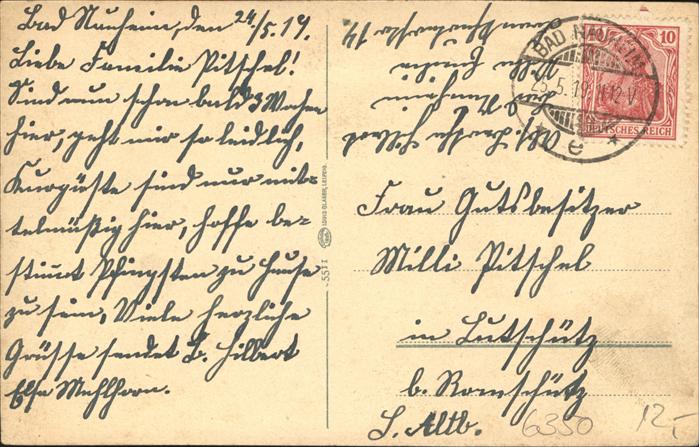 Bad Nauheim, den 24/5.19.
Liebe Familie Pitschel!
Sind nun schon bald 3 Wochen
hier, geht mir so leidlich,
Kurgäste sind nur mit-
telmäßig hier, hoffe be-
stimmt Pfingsten zu Hause
zu sein, Viele herzliche
Grüsse sendet L. Hilbert
Else Mehlhorn.
10693 GLASER, LEIPZIG.
5511
14
BAD NAUHEIM
25.5.19. 11-12-V.
* e *
10
DEUTSCHES REICH
Frau Gutsbesitzer
Milli Pitschel
in Lutschütz
b. Romschütz
S. Altb.
6350
12,-